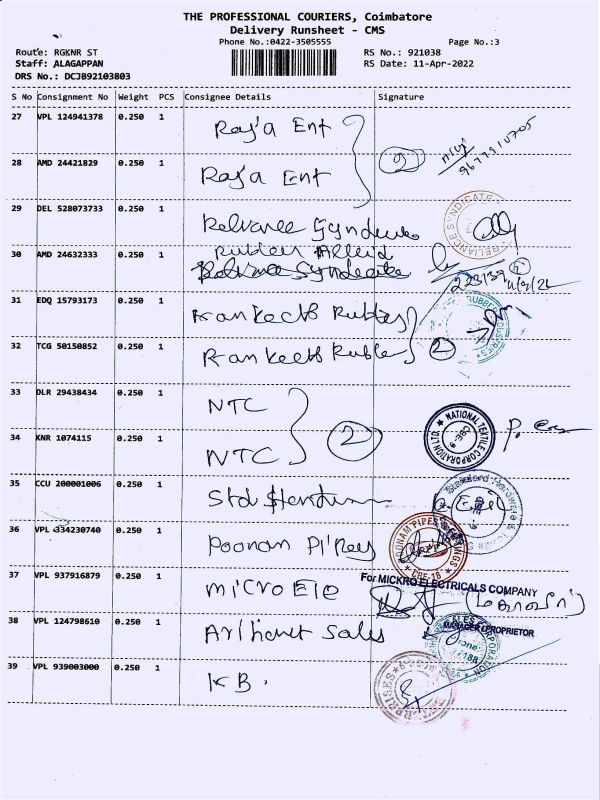 THE PROFESSIONAL COURIERS, Coimbatore
Delivery Runsheet - CMS
Phone No.:0422-3505555 Page No.:3
Route: RGKNR ST RS No.: 921038
Staff: ALAGAPPAN RS Date: 11-Apr-2022
DRS No.: DCJB92103803
S No Consignment No Weight PCS Consignee Details Signature
27 VPL 124941378 0.250 1 Raja Ent
9677910705
28 AMD 24421829 0.250 1 Raja Ent
29 DEL 528073733 0.250 1 Reliance Syndicate
RELIANCE SYNDICATE
30 AMD 24632333 0.250 1 Rubber Allied
Reliance Syndicate
31 EDQ 15793173 0.250 1 Rubber
RUBBER
32 TCG 50150852 0.250 1 Rubber 2
33 DLR 29438434 0.250 1 NTC
NATIONAL TEXTILE CORPORATION LTD.
34 KNR 1074115 0.250 1 NTC 2
35 CCU 200001006 0.250 1 Std
Standard Hardware
36 VPL 334230740 0.250 1 Poonam Pipes
POONAM PIPES
CBE-18
37 VPL 937916879 0.250 1 Micro Ele
For MICKRO ELECTRICALS COMPANY
MANAGER / PROPRIETOR
38 VPL 124798610 0.250 1 Arihant Sales
CORPORATION
39 VPL 939003000 0.250 1 KB.